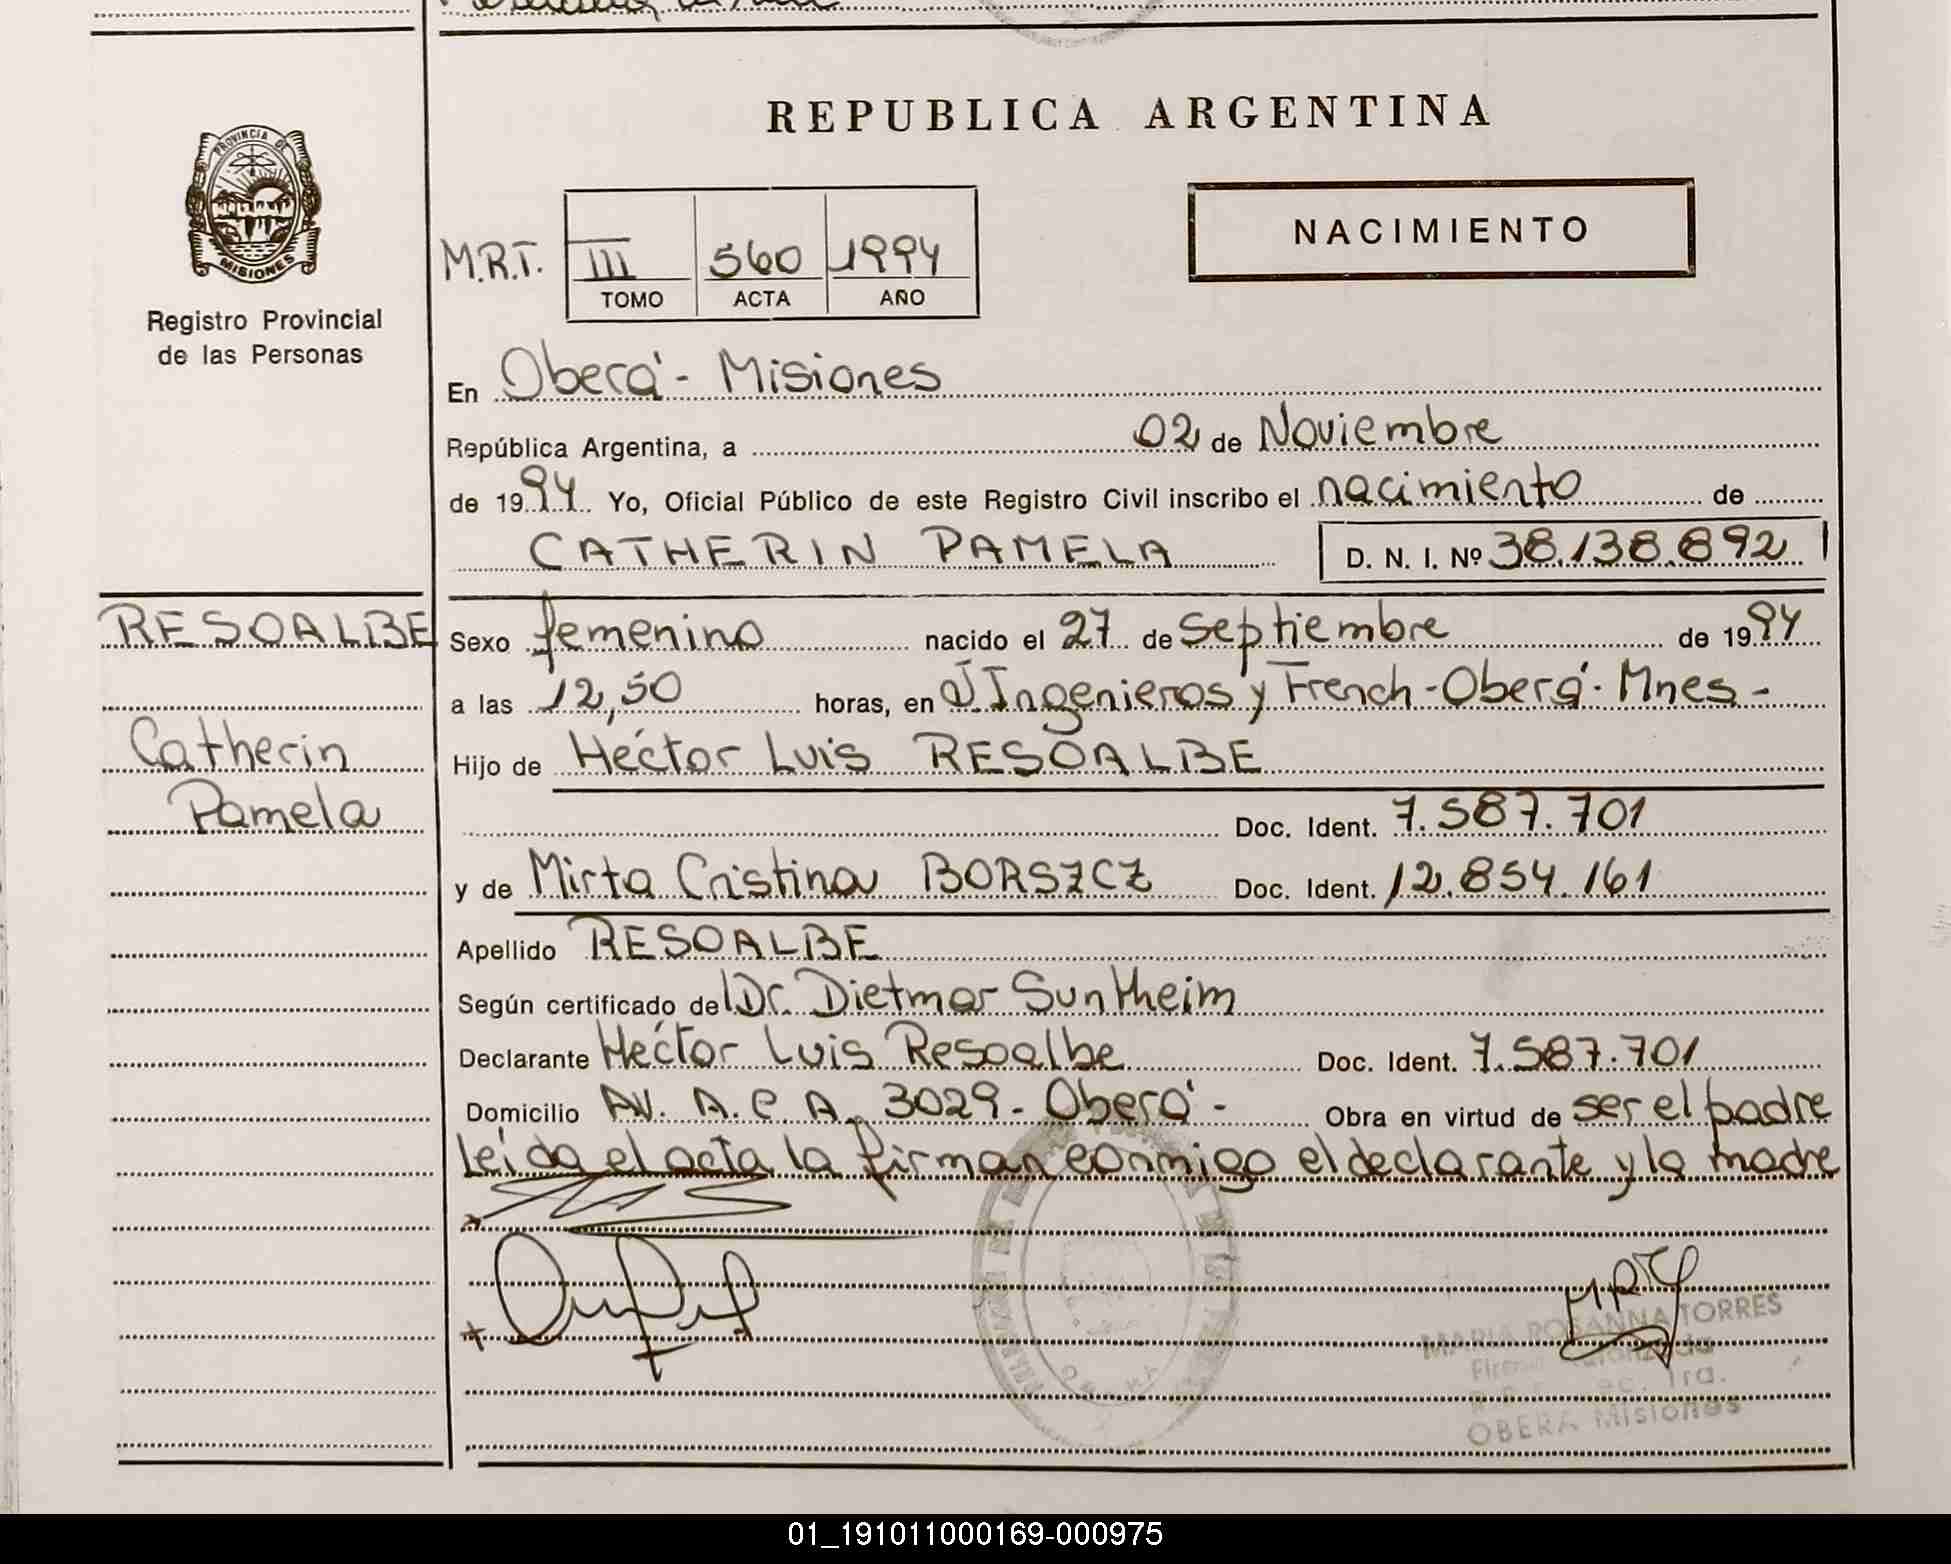 REPUBLICA ARGENTINA
PROVINCIA DE
MISIONES
Registro Provincial
de las Personas
NACIMIENTO
M.R.T. III 560 1994
TOMO ACTA AÑO
En Oberá - Misiones
República Argentina, a 02 de Noviembre
de 1994. Yo, Oficial Público de este Registro Civil inscribo el nacimiento de
CATHERIN PAMELA D. N. I. Nº 38.138.892
RESOALBE
Catherin
Pamela
Sexo femenino nacido el 27 de Septiembre de 1994
a las 12,50 horas, en J Ingenieros y French - Oberá - Mnes -
Hijo de Héctor Luis RESOALBE
Doc. Ident. 7.587.701
y de Mirta Cristina BORSZCZ Doc. Ident. 12.854.161
Apellido RESOALBE
Según certificado del Dr. Dietmar Suntheim
Declarante Héctor Luis Resoalbe Doc. Ident. 7.587.701
Domicilio AV. A.C.A. 3029 - Oberá - Obra en virtud de ser el padre
Leída el acta la firman conmigo el declarante y la madre
MARIA ROSANNA TORRES
OBERA Misiones
01_191011000169-000975